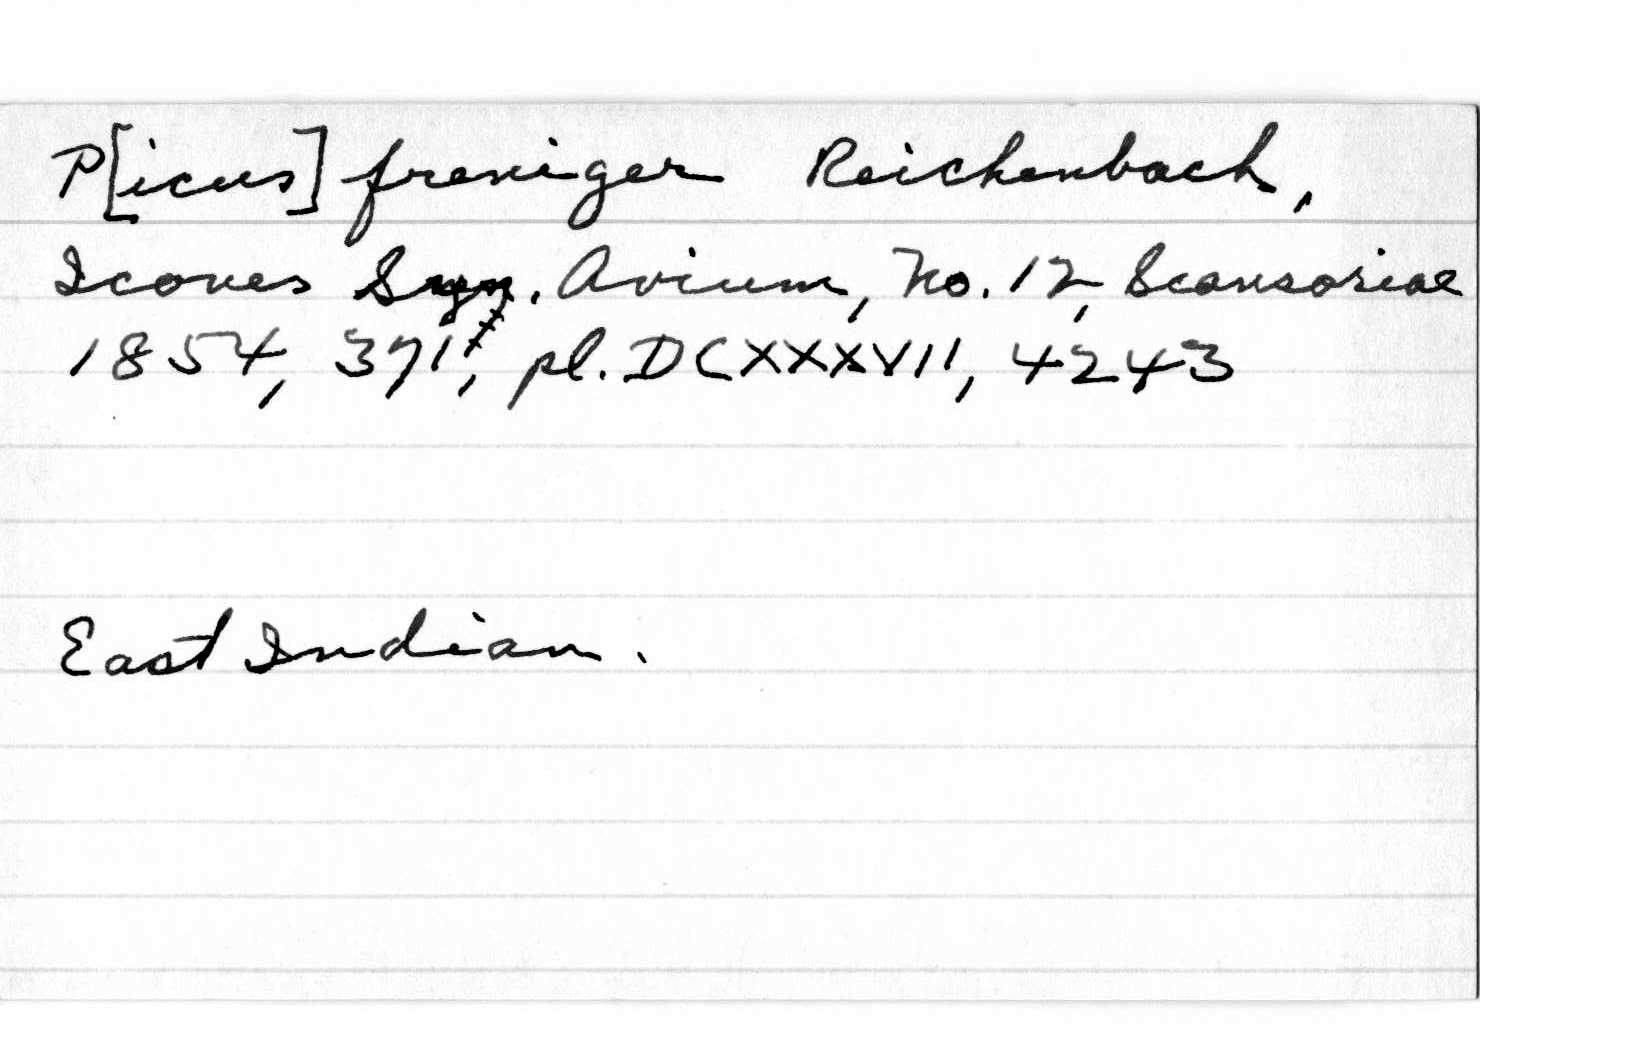 P[icus] freniger Reichenbach,
Icones Syn. Avium, No. 12, Scansoriae
1854, 371, pl. DCXXXVII, 4243
East Indian.